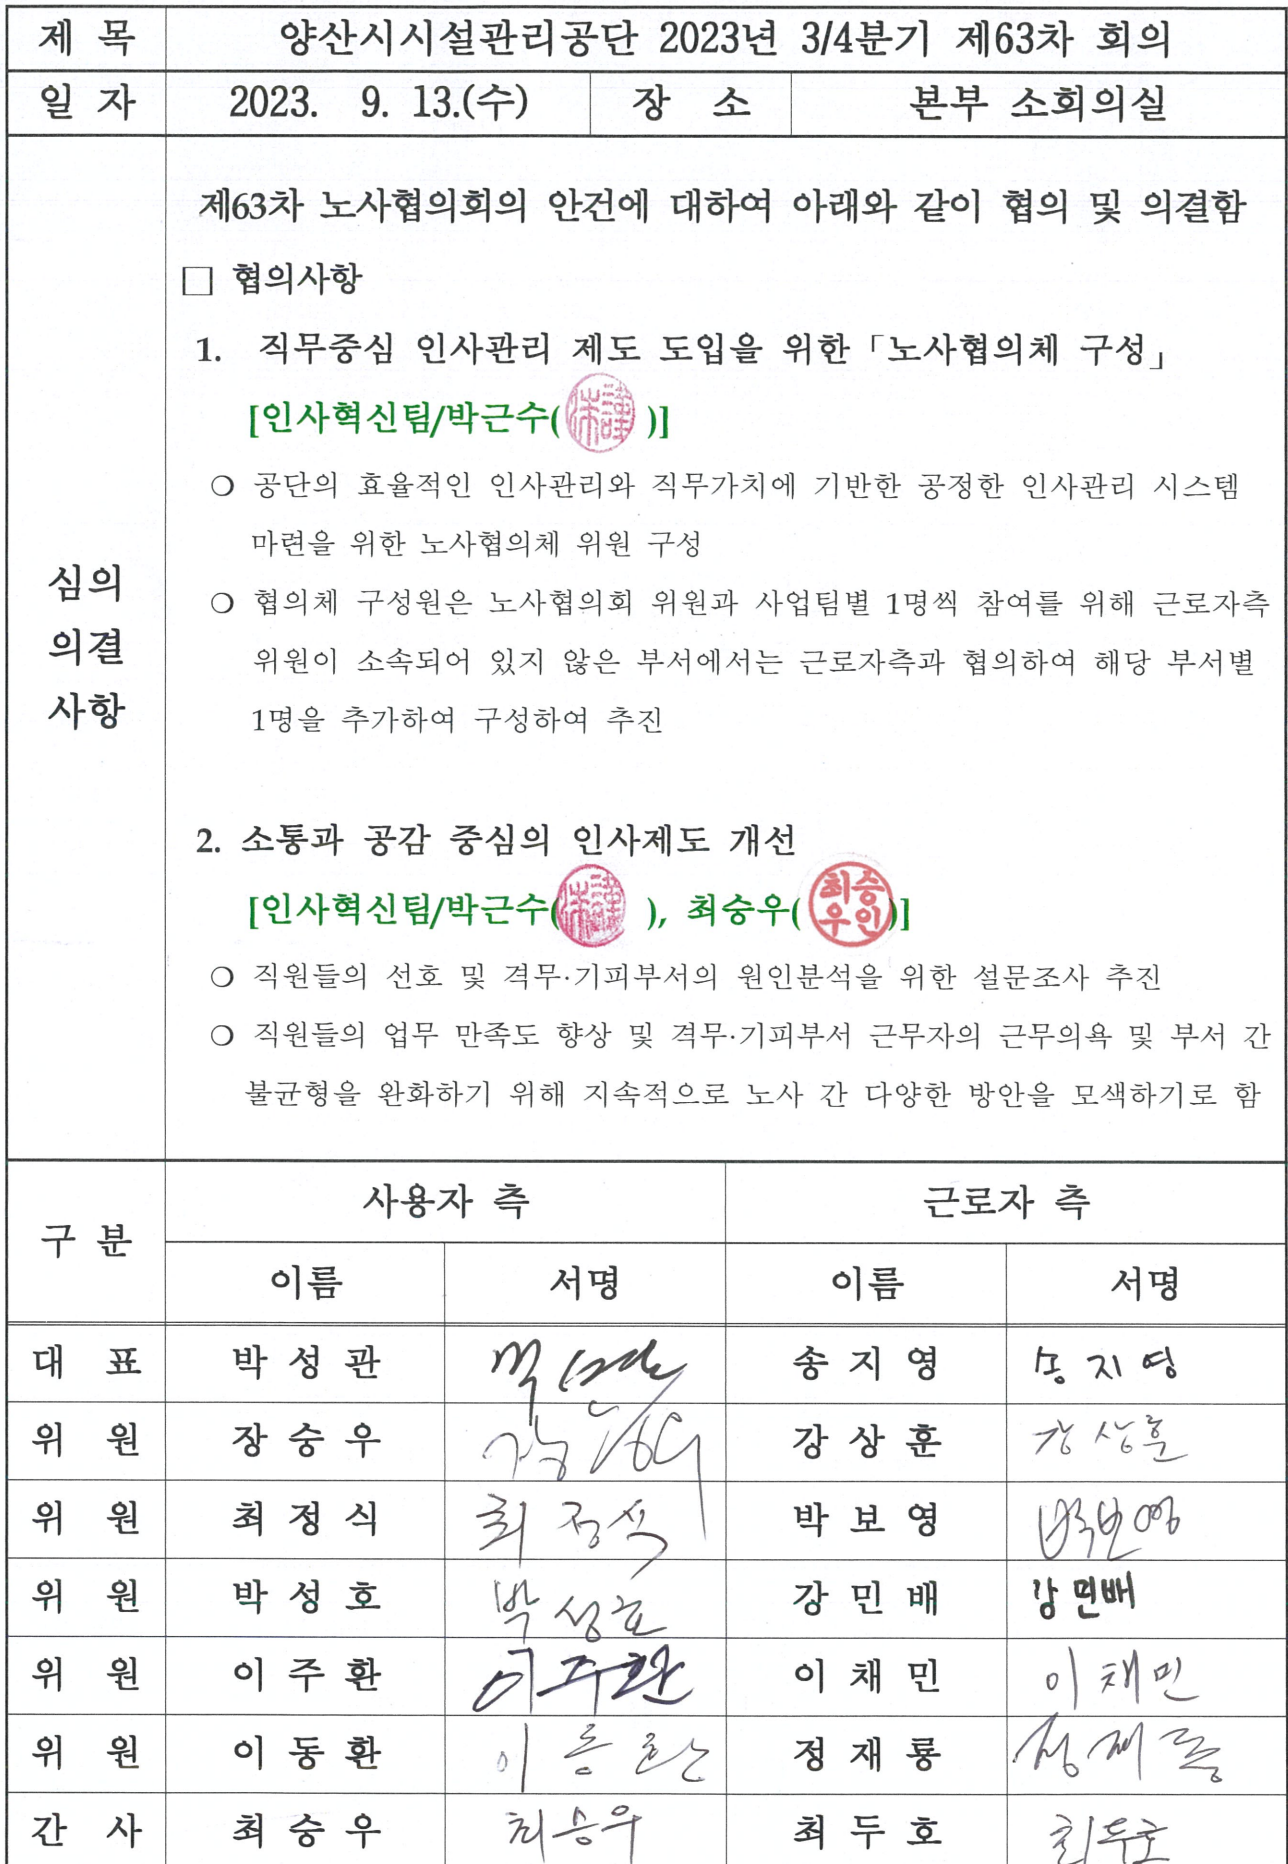 제 목 양산시시설관리공단 2023년 3/4분기 제63차 회의
일 자 2023. 9. 13.(수) 장 소 본부 소회의실
심의
의결
사항
제63차 노사협의회의 안건에 대하여 아래와 같이 협의 및 의결함
□ 협의사항
1. 직무중심 인사관리 제도 도입을 위한「노사협의체 구성」
[인사혁신팀/박근수( )]
❍ 공단의 효율적인 인사관리와 직무가치에 기반한 공정한 인사관리 시스템
마련을 위한 노사협의체 위원 구성
❍ 협의체 구성원은 노사협의회 위원과 사업팀별 1명씩 참여를 위해 근로자측
위원이 소속되어 있지 않은 부서에서는 근로자측과 협의하여 해당 부서별
1명을 추가하여 구성하여 추진
2. 소통과 공감 중심의 인사제도 개선
[인사혁신팀/박근수( ), 최승우( 최승우인 )]
❍ 직원들의 선호 및 격무·기피부서의 원인분석을 위한 설문조사 추진
❍ 직원들의 업무 만족도 향상 및 격무·기피부서 근무자의 근무의욕 및 부서 간
불균형을 완화하기 위해 지속적으로 노사 간 다양한 방안을 모색하기로 함
구 분 사용자 측 근로자 측
이름 서명 이름 서명
대 표 박 성 관 송 지 영 송지영
위 원 장 승 우 강 상 훈 강상훈
위 원 최 정 식 최정식 박 보 영 박보영
위 원 박 성 호 박성호 강 민 배 강민배
위 원 이 주 환 이주환 이 채 민 이채민
위 원 이 동 환 이동환 정 재 룡 정재룡
간 사 최 승 우 최승우 최 두 호 최두호